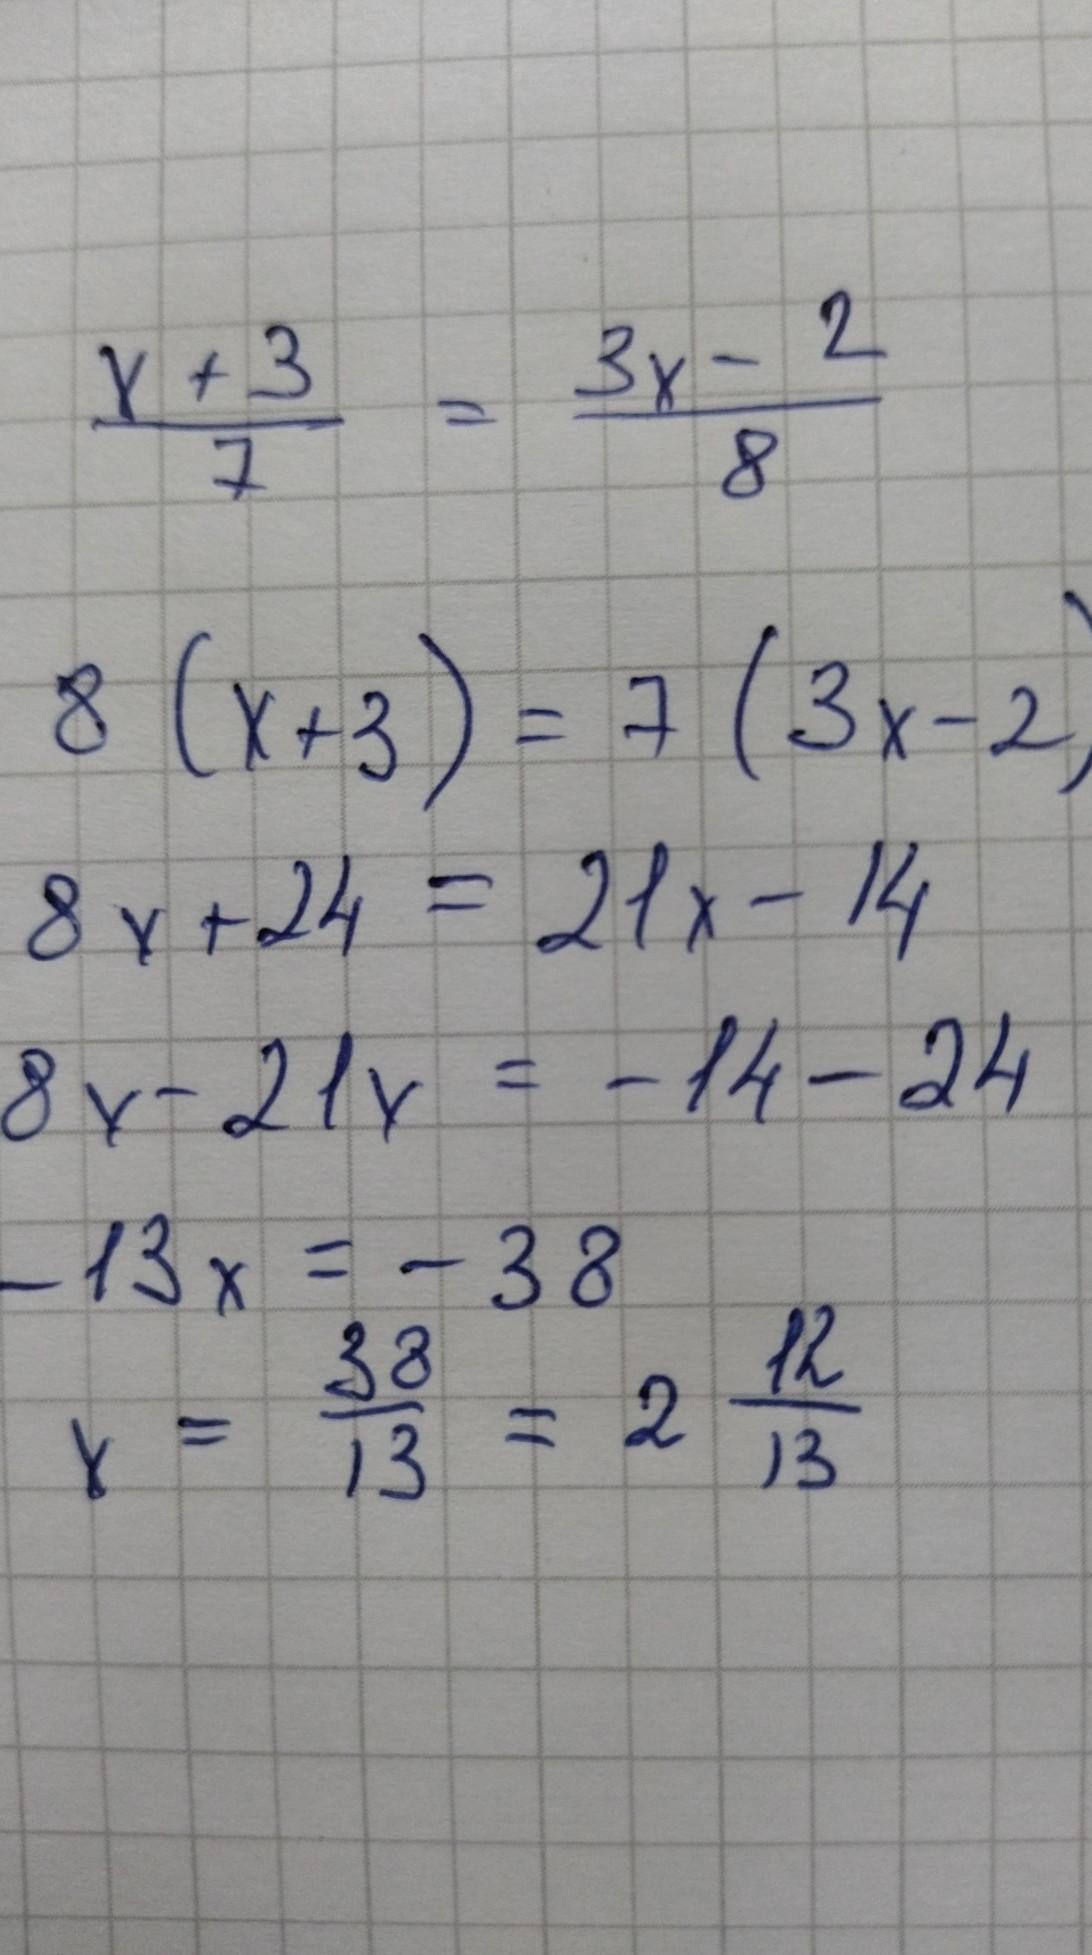 x + 3 / 7 = 3x - 2 / 8
8 (x+3) = 7 (3x-2)
8x+24 = 21x - 14
8x - 21x = -14 - 24
-13x = -38
x = 38/13 = 2 12/13